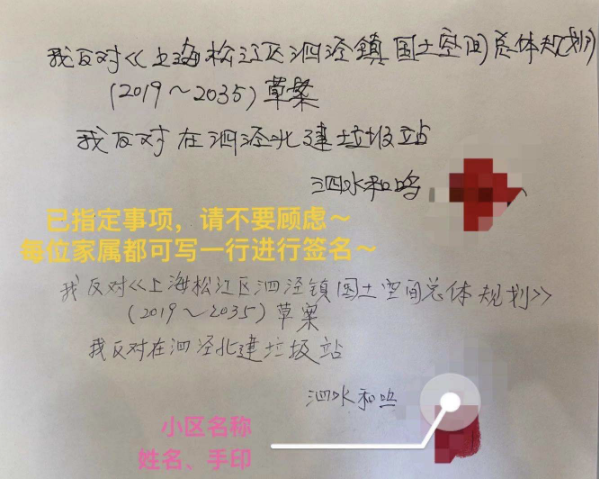 我反对《上海松江区泗泾镇国土空间总体规划》
(2019～2035)草案
我反对在泗泾北建垃圾站
泗水和鸣
已指定事项，请不要顾虑～
每位家属都可写一行进行签名～
我反对《上海松江区泗泾镇国土空间总体规划》
(2019～2035)草案
我反对在泗泾北建垃圾站
泗水和鸣
小区名称
姓名、手印